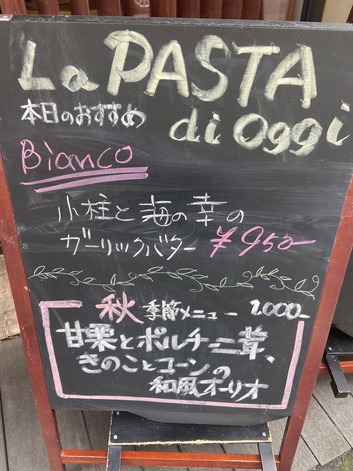 La PASTA
本日のおすすめ
di oggi
Bianco
小柱と海の幸の
ガーリックバター ¥950-
秋 季節メニュー 1.000-
甘栗とポルチーニ茸、
きのことコーンの
和風オーリオ